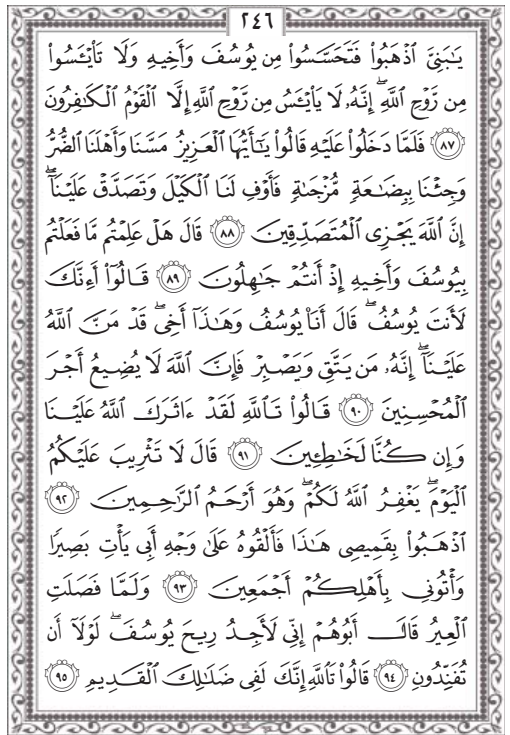 ٢٤٦
يَٰبَنِىَّ ٱذْهَبُوا۟ فَتَحَسَّسُوا۟ مِن يُوسُفَ وَأَخِيهِ وَلَا تَا۟يْـَٔسُوا۟
مِن رَّوْحِ ٱللَّهِ ۖ إِنَّهُۥ لَا يَا۟يْـَٔسُ مِن رَّوْحِ ٱللَّهِ إِلَّا ٱلْقَوْمُ ٱلْكَٰفِرُونَ
٨٧ فَلَمَّا دَخَلُوا۟ عَلَيْهِ قَالُوا۟ يَٰٓأَيُّهَا ٱلْعَزِيزُ مَسَّنَا وَأَهْلَنَا ٱلضُّرُّ
وَجِئْنَا بِبِضَٰعَةٍ مُّزْجَىٰةٍ فَأَوْفِ لَنَا ٱلْكَيْلَ وَتَصَدَّقْ عَلَيْنَآ ۖ
إِنَّ ٱللَّهَ يَجْزِى ٱلْمُتَصَدِّقِينَ ٨٨ قَالَ هَلْ عَلِمْتُم مَّا فَعَلْتُم
بِيُوسُفَ وَأَخِيهِ إِذْ أَنتُمْ جَٰهِلُونَ ٨٩ قَالُوٓا۟ أَءِنَّكَ
لَأَنتَ يُوسُفُ ۖ قَالَ أَنَا۠ يُوسُفُ وَهَٰذَآ أَخِى ۖ قَدْ مَنَّ ٱللَّهُ
عَلَيْنَآ ۖ إِنَّهُۥ مَن يَتَّقِ وَيَصْبِرْ فَإِنَّ ٱللَّهَ لَا يُضِيعُ أَجْرَ
ٱلْمُحْسِنِينَ ٩٠ قَالُوا۟ تَٱللَّهِ لَقَدْ ءَاثَرَكَ ٱللَّهُ عَلَيْنَا
وَإِن كُنَّا لَخَٰطِـِٔينَ ٩١ قَالَ لَا تَثْرِيبَ عَلَيْكُمُ
ٱلْيَوْمَ ۖ يَغْفِرُ ٱللَّهُ لَكُمْ ۖ وَهُوَ أَرْحَمُ ٱلرَّٰحِمِينَ ٩٢
ٱذْهَبُوا۟ بِقَمِيصِى هَٰذَا فَأَلْقُوهُ عَلَىٰ وَجْهِ أَبِى يَأْتِ بَصِيرًا
وَأْتُونِى بِأَهْلِكُمْ أَجْمَعِينَ ٩٣ وَلَمَّا فَصَلَتِ
ٱلْعِيرُ قَالَ أَبُوهُمْ إِنِّى لَأَجِدُ رِيحَ يُوسُفَ ۖ لَوْلَآ أَن
تُفَنِّدُونِ ٩٤ قَالُوا۟ تَٱللَّهِ إِنَّكَ لَفِى ضَلَٰلِكَ ٱلْقَدِيمِ ٩٥